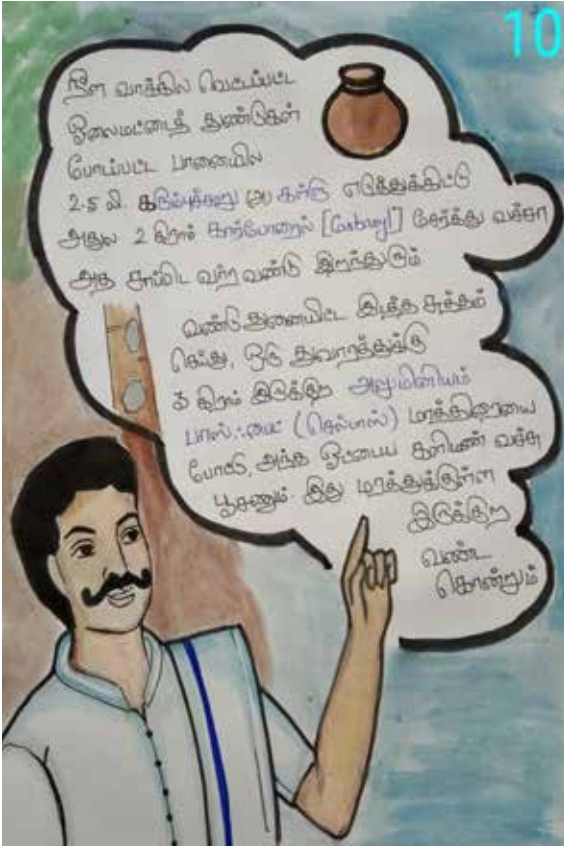 10
நீள வாக்கில வெட்டப்பட்ட
ஓலைமட்டைத் துண்டுகள்
போடப்பட்ட பானையில
2.5 லி கரும்புச்சாறு (அ) கள்ளு எடுத்துக்கிட்டு
அதுல 2 கிராம் கார்போரைல் [Carbaryl] சேர்த்து வச்சா
அத சாப்பிட வர்ற வண்டு இறந்துரும்
வண்டு துளையிட்ட இடத்த சுத்தம்
செய்து, ஒரு துவாரத்துக்கு
3 கிராம் இருக்கிற அலுமினியம்
பாஸ்ஃபைட் (செல்பாஸ்) மாத்திரையை
போட்டு, அந்த ஓட்டைய களிமண் வச்சு
பூசணும். இது மரத்துக்குள்ள
இருக்கிற
வண்ட
கொன்றும்